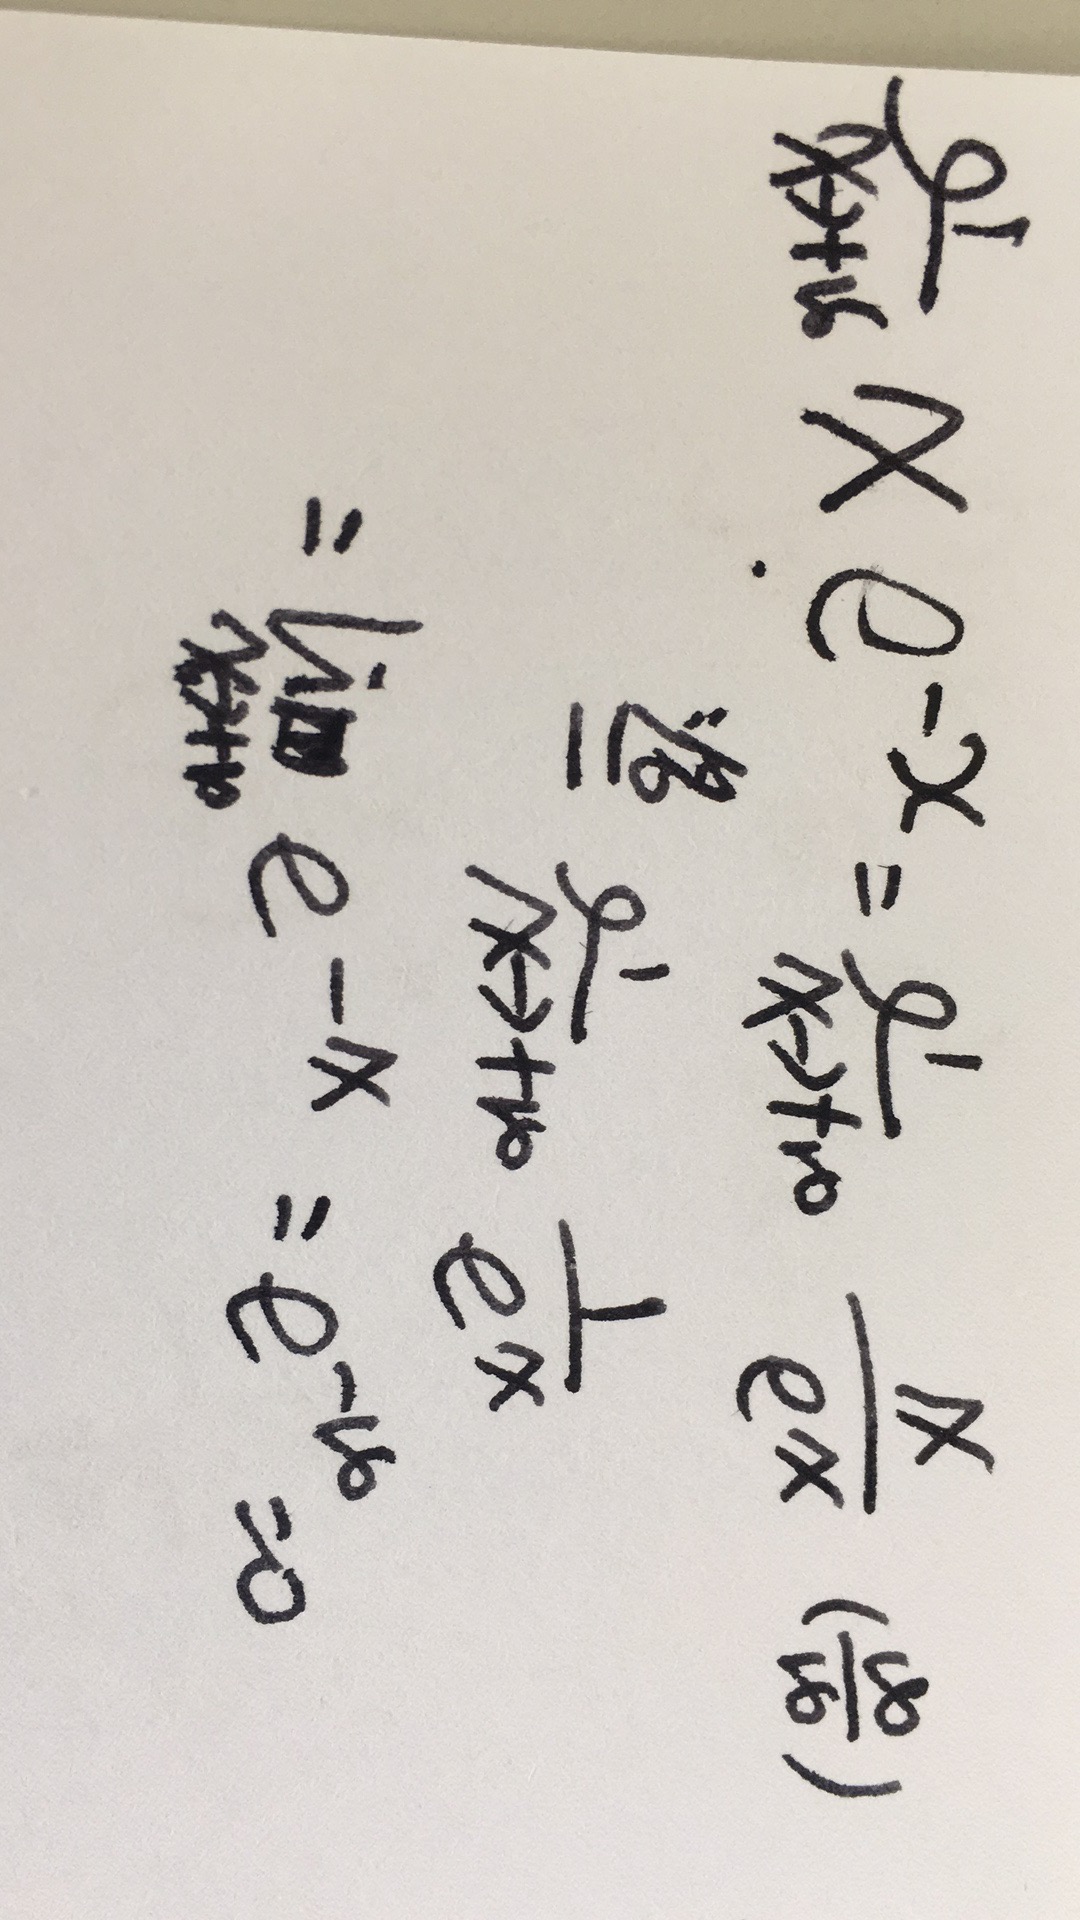 lim x→+∞ x e^-x = lim x→+∞ x/e^x (∞/∞)
= lim x→+∞ 1/e^x
= lim x→+∞ e^-x = e^-∞ = 0